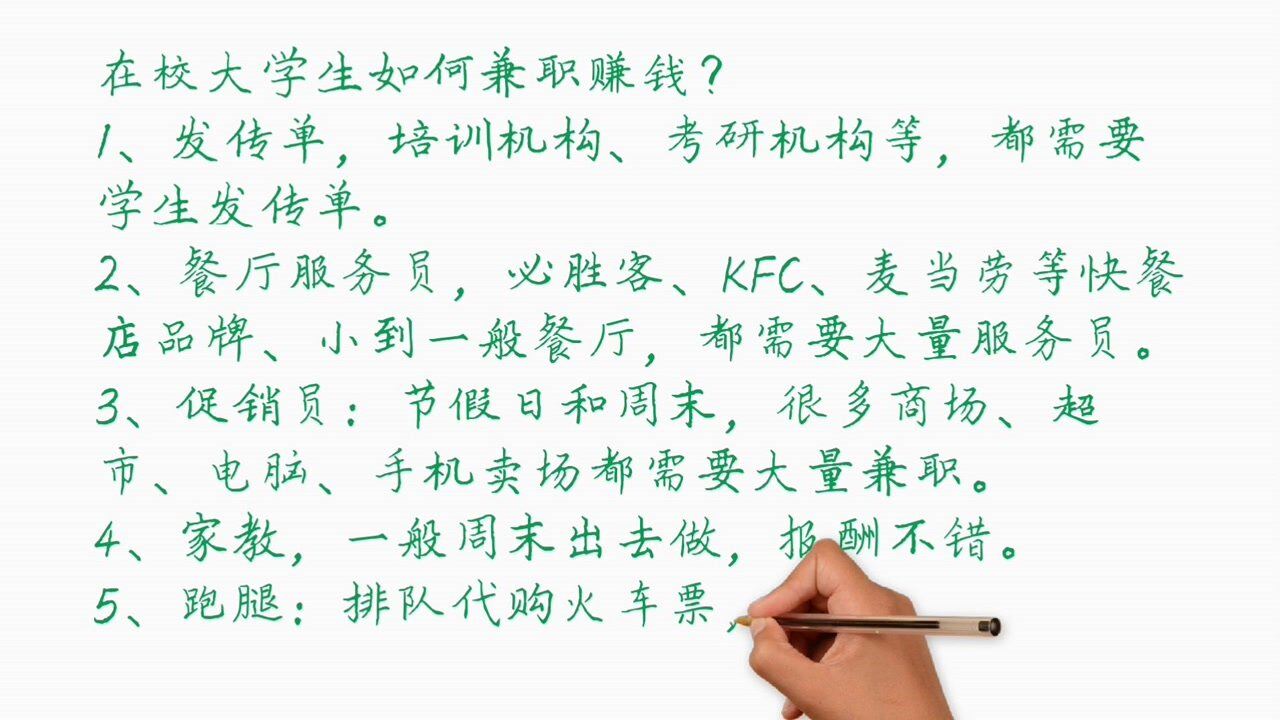 在校大学生如何兼职赚钱？
1、发传单，培训机构、考研机构等，都需要
学生发传单。
2、餐厅服务员，必胜客、KFC、麦当劳等快餐
店品牌、小到一般餐厅，都需要大量服务员。
3、促销员：节假日和周末，很多商场、超
市、电脑、手机卖场都需要大量兼职。
4、家教，一般周末出去做，报酬不错。
5、跑腿：排队代购火车票，